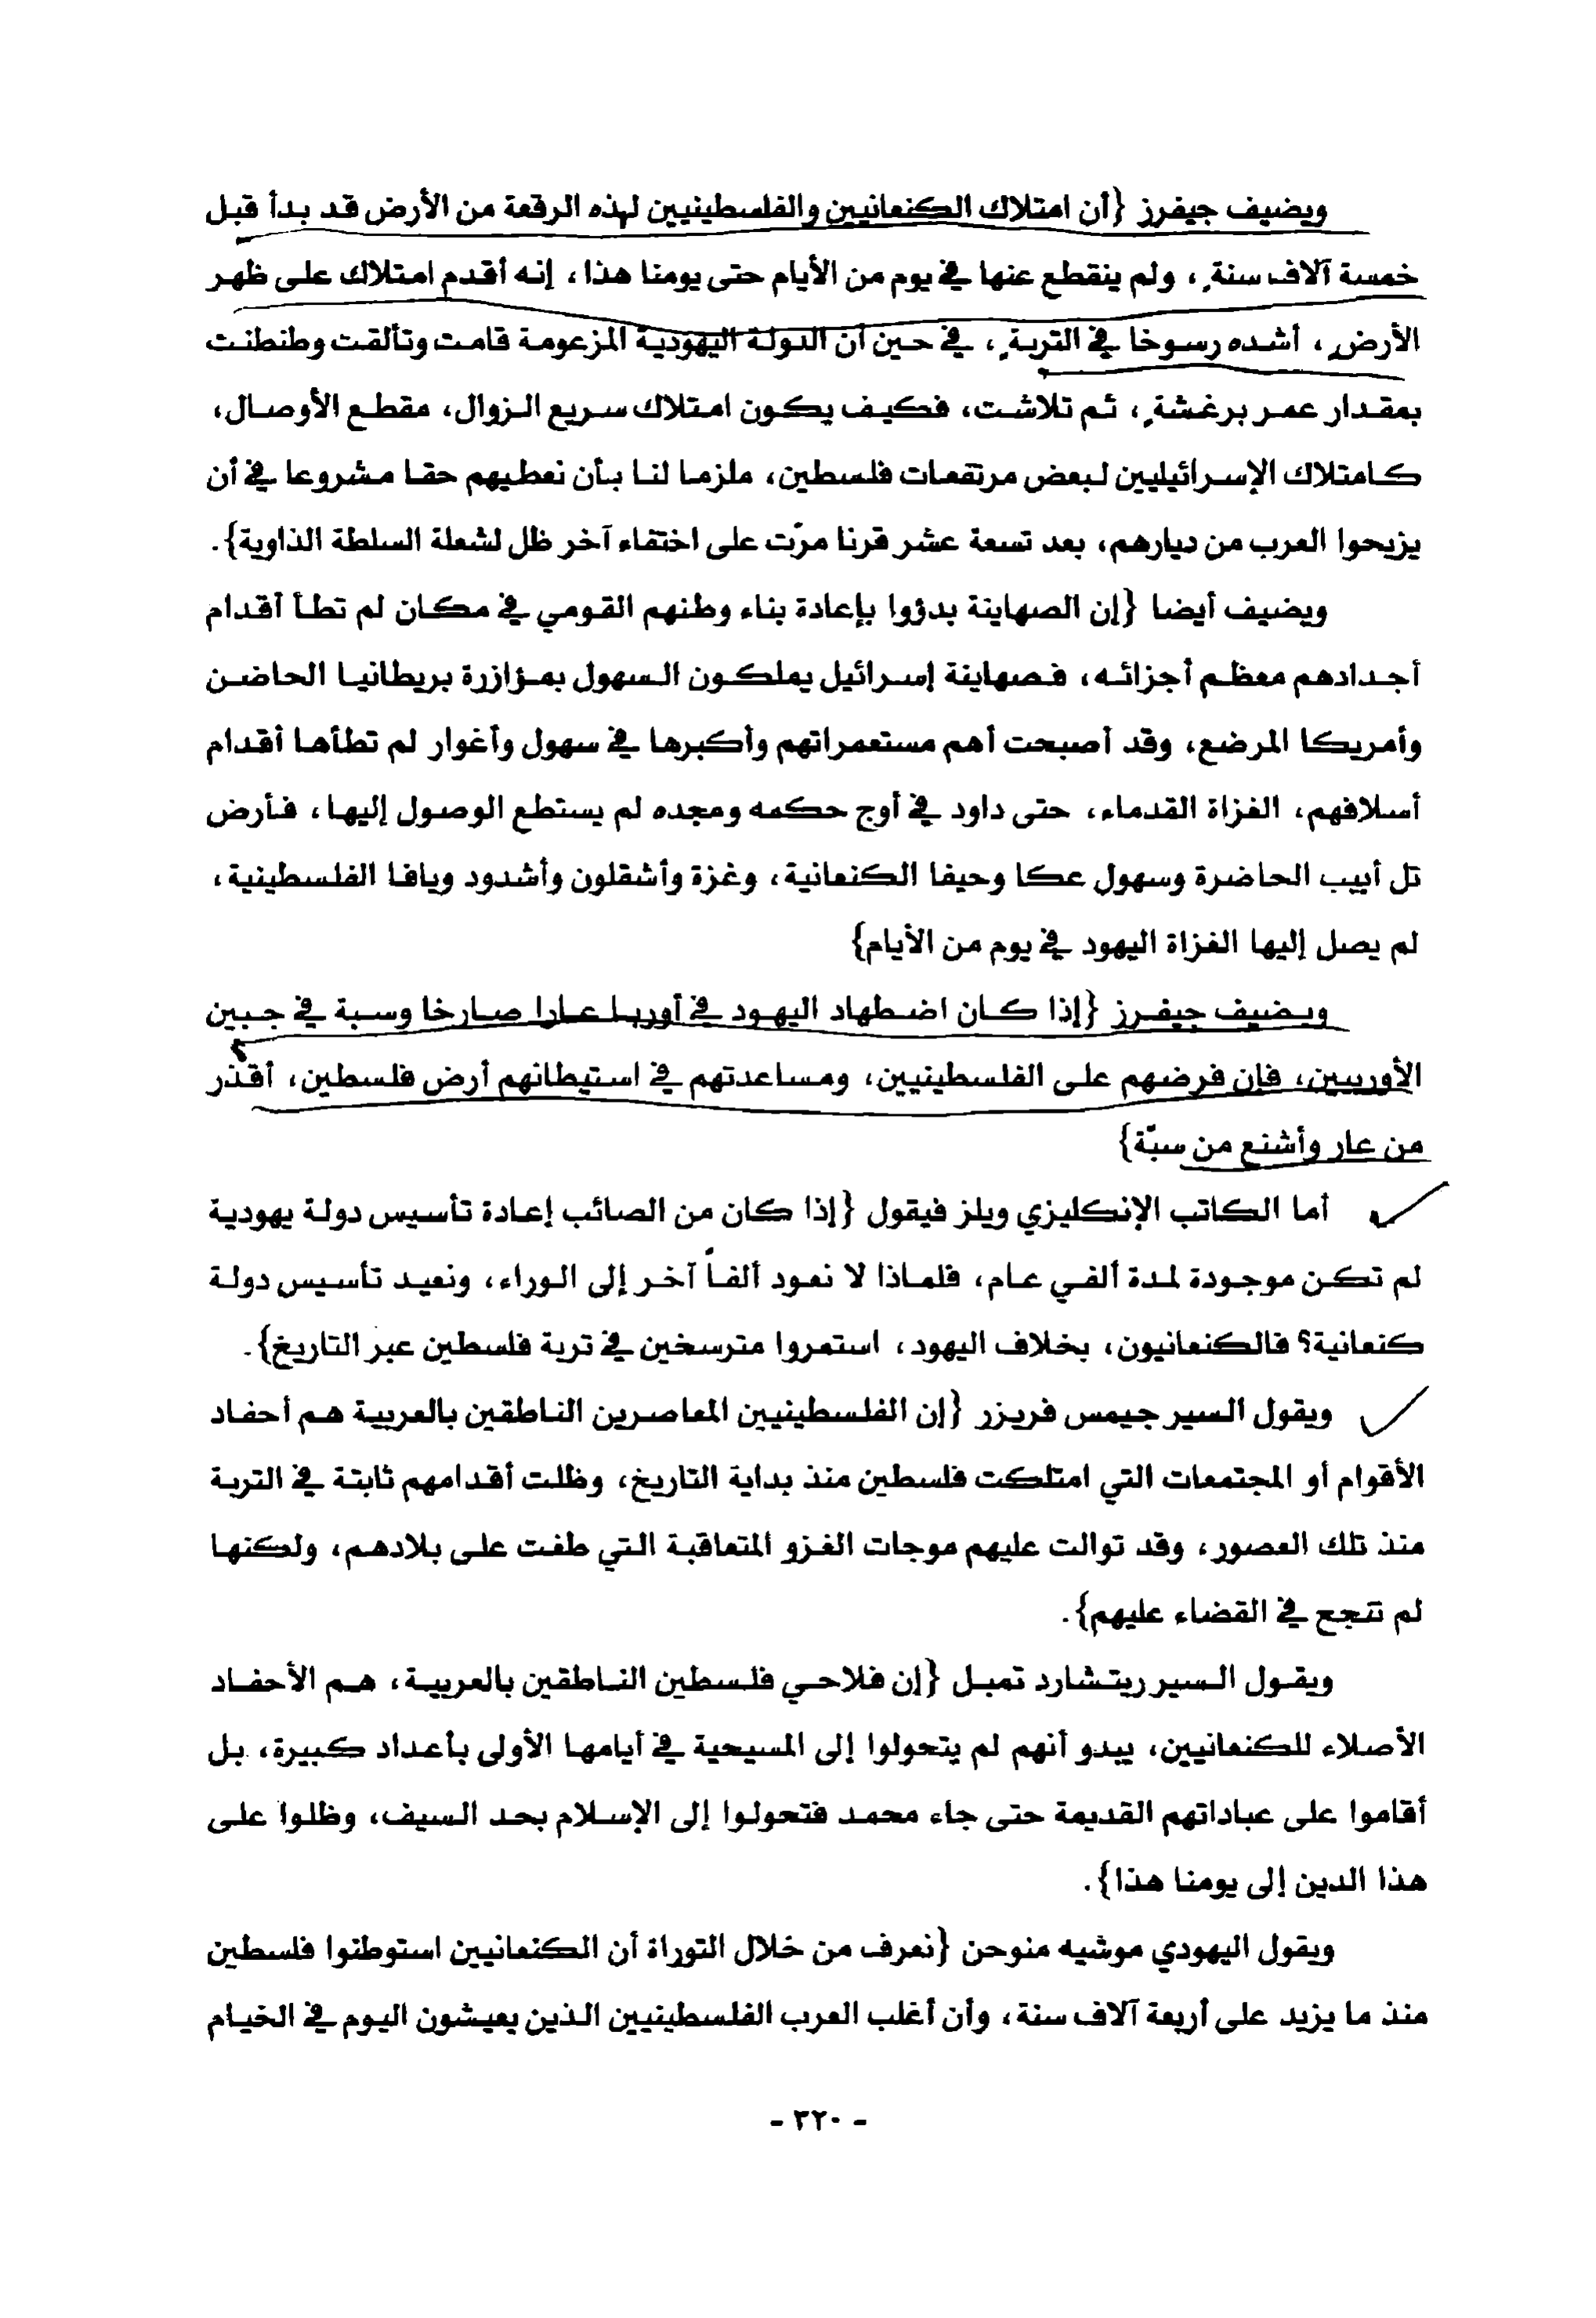 ويضيف جيفرز {أن امتلاك الكنعانيين والفلسطينيين لهذه الرقعة من الأرض قد بدأ قبل
خمسة آلاف سنة، ولم ينقطع عنها في يوم من الأيام حتى يومنا هذا، إنه أقدم امتلاك على ظهر
الأرض، أشده رسوخا في التربة، في حين أن الدولة اليهودية المزعومة قامت وتألقت وطنطنت
بمقدار عمر برغشة، ثم تلاشت، فكيف يكون امتلاك سريع الزوال، مقطع الأوصال،
كامتلاك الإسرائيليين لبعض مرتفعات فلسطين، ملزما لنا بأن نعطيهم حقا مشروعا في أن
يزيحوا العرب من ديارهم، بعد تسعة عشر قرنا مرّت على اختفاء آخر ظل لشعلة السلطة الذاوية}.
ويضيف أيضا {إن الصهاينة بدؤوا بإعادة بناء وطنهم القومي في مكان لم تطأ أقدام
أجدادهم معظم أجزائه، فصهاينة إسرائيل يملكون السهول بمؤازرة بريطانيا الحاضن
وأمريكا المرضع، وقد أصبحت أهم مستعمراتهم وأكبرها في سهول وأغوار لم تطأها أقدام
أسلافهم، الغزاة القدماء، حتى داود في أوج حكمه ومجده لم يستطع الوصول إليها، فأرض
تل أبيب الحاضرة وسهول عكا وحيفا الكنعانية، وغزة وأشقلون وأشدود ويافا الفلسطينية،
لم يصل إليها الغزاة اليهود في يوم من الأيام}
ويضيف جيفرز {إذا كان اضطهاد اليهود في أوربا عارا صارخا وسبة في جبين
الأوربيين، فإن فرضهم على الفلسطينيين، ومساعدتهم في استيطانهم أرض فلسطين، أقذر
من عار وأشنع من سبّة}
أما الكاتب الإنكليزي ويلز فيقول {إذا كان من الصائب إعادة تأسيس دولة يهودية
لم تكن موجودة لمدة ألفي عام، فلماذا لا نعود ألفاً آخر إلى الوراء، ونعيد تأسيس دولة
كنعانية؟ فالكنعانيون، بخلاف اليهود، استمروا مترسخين في تربة فلسطين عبر التاريخ}.
ويقول السير جيمس فريزر {إن الفلسطينيين المعاصرين الناطقين بالعربية هم أحفاد
الأقوام أو المجتمعات التي امتلكت فلسطين منذ بداية التاريخ، وظلت أقدامهم ثابتة في التربة
منذ تلك العصور، وقد توالت عليهم موجات الغزو المتعاقبة التي طغت على بلادهم، ولكنها
لم تنجح في القضاء عليهم}.
ويقول السير ريتشارد تمبل {إن فلاحي فلسطين الناطقين بالعربية، هم الأحفاد
الأصلاء للكنعانيين، يبدو أنهم لم يتحولوا إلى المسيحية في أيامها الأولى بأعداد كبيرة، بل
أقاموا على عباداتهم القديمة حتى جاء محمد فتحولوا إلى الإسلام بحد السيف، وظلوا على
هذا الدين إلى يومنا هذا}.
ويقول اليهودي موشيه منوحن {نعرف من خلال التوراة أن الكنعانيين استوطنوا فلسطين
منذ ما يزيد على أربعة آلاف سنة، وأن أغلب العرب الفلسطينيين الذين يعيشون اليوم في الخيام
- ٣٢٠ -